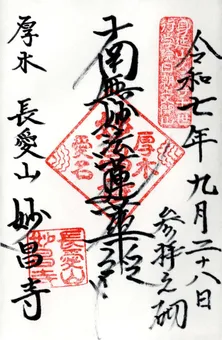 令和七年九月二十八日
参拝之砌
南無妙法蓮華経
厚木
愛名
厚木 長愛山 妙昌寺
長愛山
妙昌寺